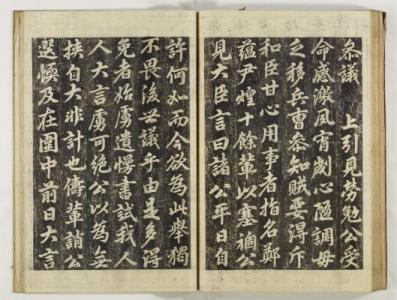 參議 上引見勞勉公受
命感激夙宵心調毋
乏移兵曹參知賊要得斥
和臣甘心用事者指名鄭
蘊尹煌十餘輩以塞禍公
見大臣言曰諸公平日自
許何如而今欲爲此擧獨
不畏後世議乎由是多得
免者始虜遺慢書試我人
人大言虜可絶公以爲無
挾自大非計也儕輩誚公
選愞及在圍中前日大言